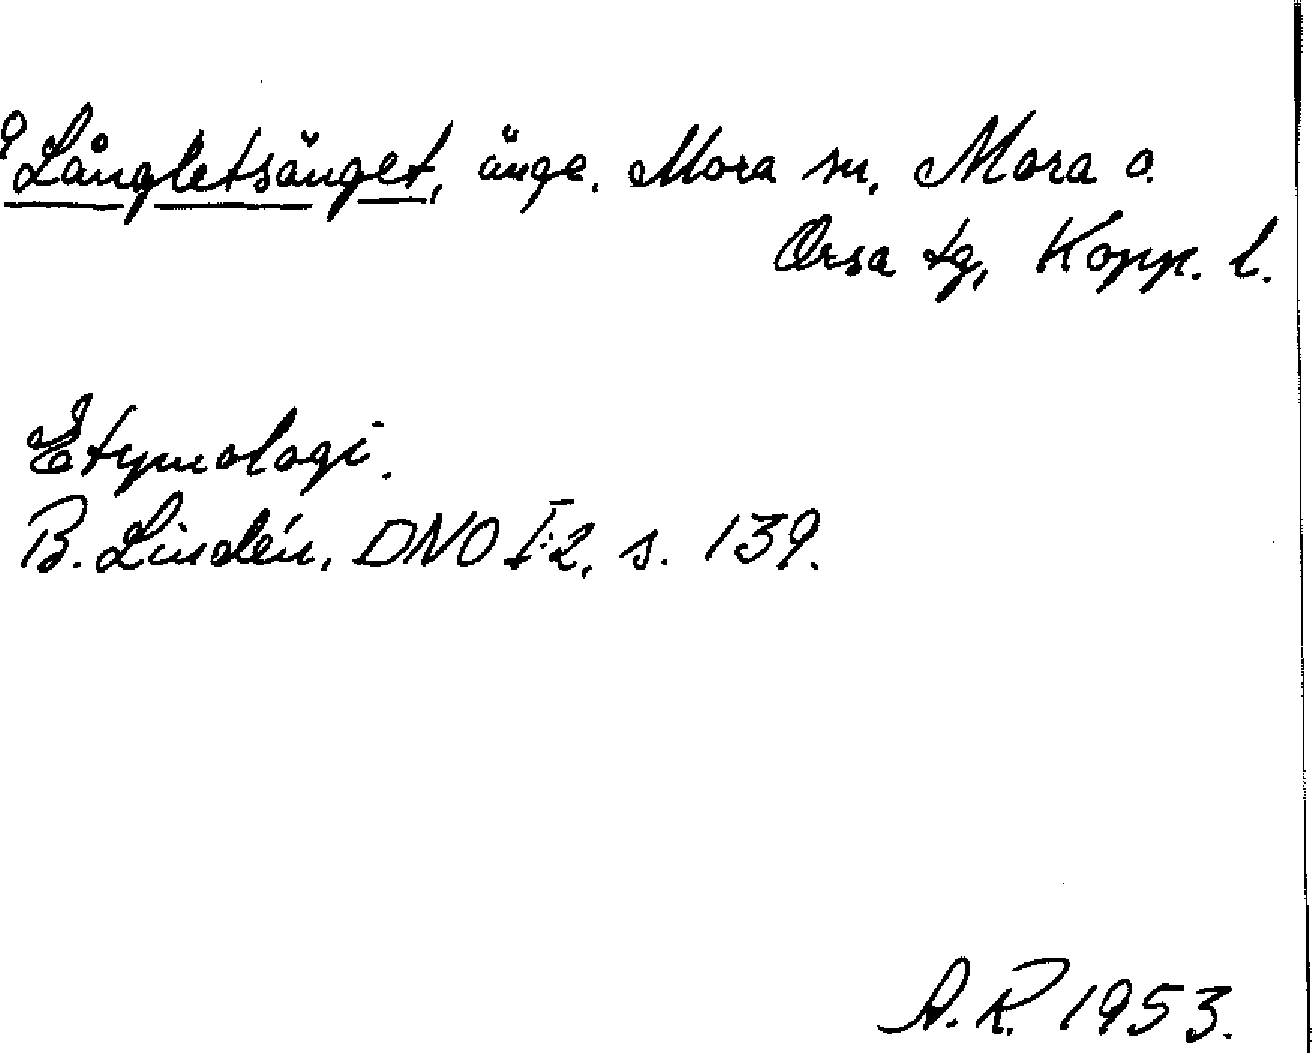 Långletsänget, änge. Mora sn, Mora o.
Orsa tg, Kopp. l.
Etymologi.
B. Lindén, DNO I:2, s. 139.
A. R. 1953.